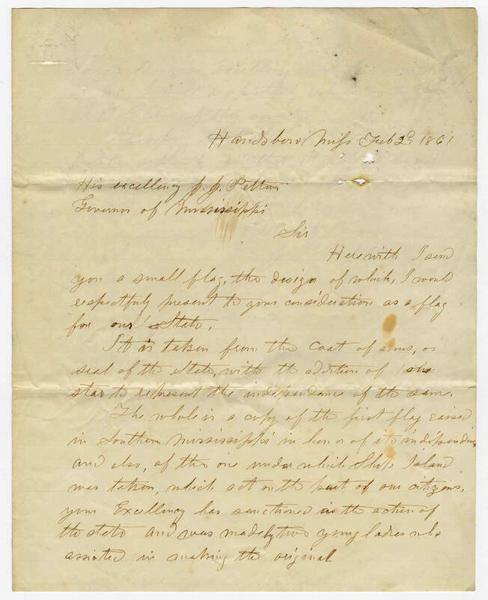 Handsboro Miss Feb 2d 1861
His excellency J. J. Pettus
Governor of Mississippi
Sir
Herewith I send
you a small flag, the design of which, I would
respectfully present to your consideration as a flag
for our State.
It is taken from the Coat of arms, or
seal of the State, with the addition of the
star to represent the independence of the same.
The whole is a copy of the first flag raised
in Southern Mississippi in honor of its independence
and also, of the one under which Ship Island
was taken, which act on the part of our citizens,
your Excellency has sanctioned as the action of
the state and was made by two young ladies who
assisted in making the original